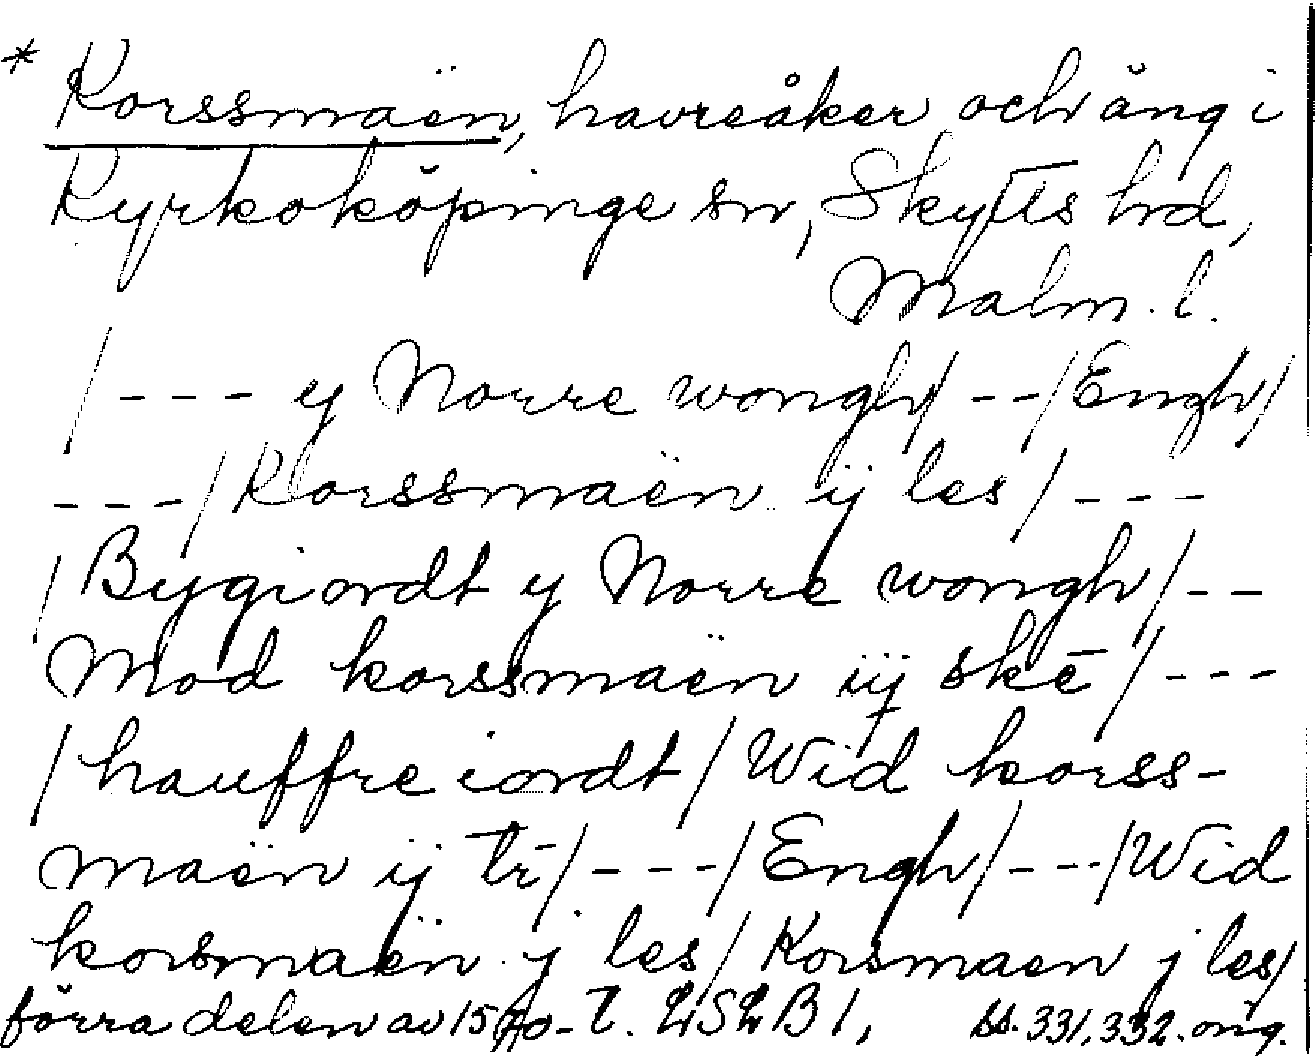 * Korssmaën, havreåker och äng i
Kyrkoköpinge sn, Skytts hd,
Malm. l.
/ - - - y Norre wongh/ - - /Engh/
- - - / Korssmaën ij les / - - -
/ Bygiordt y Norre wongh / - -
Mod korssmaën iij skē / - - -
/ hauffre iordt / Wid korss-
maën ij tr̄ / - - - / Engh / - - - / Wid
korsmaën j les / Korsmaen j les/
förra delen av 1570-t. LSLB 1, ss. 331, 332. orig.